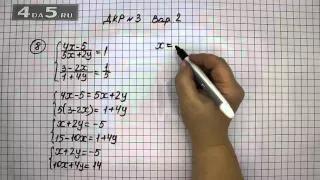 4DA5.RU
ДКР №3 Вар. 2
8) { (4x-5)/(5x+2y) = 1
(3-2x)/(1+4y) = 1/5
x=
{ 4x-5=5x+2y
5(3-2x)=1+4y
{ x+2y=-5
15-10x=1+4y
{ x+2y=-5
10x+4y=14